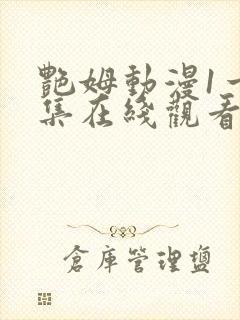 艷姆動漫1一
集在綫觀看
倉庫管理鹽